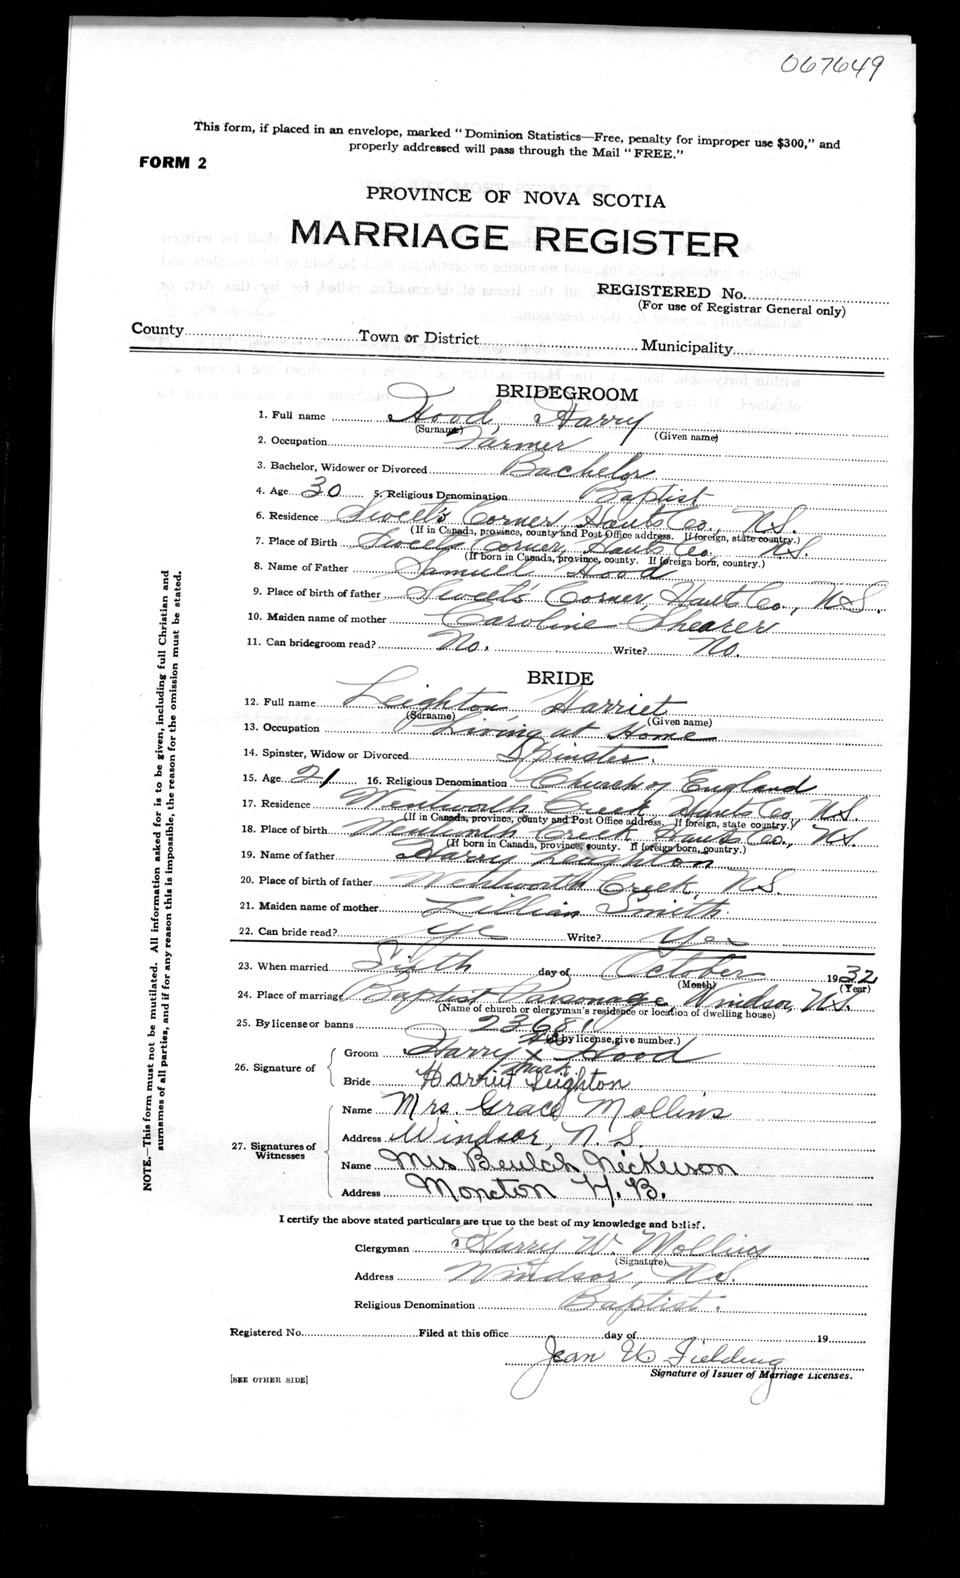 067649
This form, if placed in an envelope, marked "Dominion Statistics—Free, penalty for improper use $300," and
properly addressed will pass through the Mail "FREE."
FORM 2
PROVINCE OF NOVA SCOTIA
MARRIAGE REGISTER
REGISTERED No.
(For use of Registrar General only)
County Town or District Municipality
BRIDEGROOM
1. Full name Hood, Harry
(Surname) (Given name)
2. Occupation Farmer
3. Bachelor, Widower or Divorced Bachelor
4. Age 30 5. Religious Denomination Baptist
6. Residence Sweet's Corner, Hants Co., N.S.
(If in Canada, province, county and Post Office address. If foreign, state country.)
7. Place of Birth Sweets Corner, Hants Co. N.S.
(If born in Canada, province, county. If foreign born, country.)
8. Name of Father Samuel Hood
9. Place of birth of father Sweet's Corner, Hants Co., N.S.
10. Maiden name of mother Caroline Shearer
11. Can bridegroom read? No. Write? No.
BRIDE
12. Full name Leighton, Harriet
(Surname) (Given name)
13. Occupation Living at Home
14. Spinster, Widow or Divorced Spinster.
15. Age 21 16. Religious Denomination Church of England
17. Residence Wentworth Creek Hants Co. N.S.
(If in Canada, province, county and Post Office address. If foreign, state country.)
18. Place of birth Wentworth Creek Hants Co., N.S.
(If born in Canada, province, county. If foreign born, country.)
19. Name of father Harry Leighton
20. Place of birth of father Wentworth Creek, N.S.
21. Maiden name of mother Lillian Smith
22. Can bride read? Write? Yes
23. When married Sixth day of October 1932
(Month) (Year)
24. Place of marriage Baptist Parsonage, Windsor, N.S.
(Name of church or clergyman's residence or location of dwelling house)
25. By license or banns 23681
(If by license, give number.)
26. Signature of
Groom Harry his x mark Hood
Bride Harriet Leighton
27. Signatures of Witnesses
Name Mrs. Grace Mollins
Address Windsor, N.S.
Name Mrs Beulah Nickerson
Address Moncton N.B.
I certify the above stated particulars are true to the best of my knowledge and belief.
Clergyman Harry W. Mollins
(Signature)
Address Windsor, N.S.
Religious Denomination Baptist.
Registered No. Filed at this office day of 19
Jean Fielding
Signature of Issuer of Marriage Licenses.
[SEE OTHER SIDE]
NOTE.—This form must not be mutilated. All information asked for is to be given, including full Christian and
surnames of all parties, and if for any reason this is impossible, the reason for the omission must be stated.